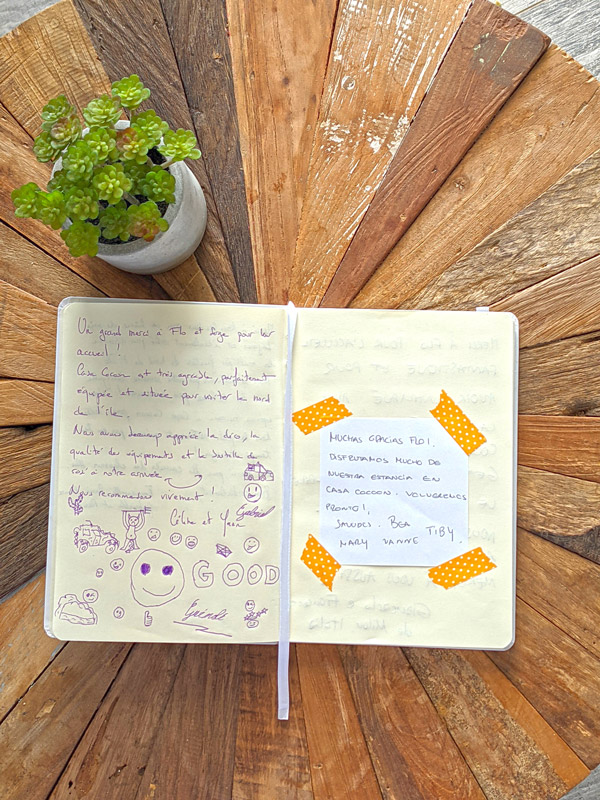 Un grand merci à Flo et Serge pour leur
accueil !
Casa Cocoon est très agréable, parfaitement
équipée et située pour visiter le nord
de l'île.
Nous avons beaucoup apprécié la déco, la
qualité des équipements et la bouteille de
rosé à notre arrivée
Nous recommandons vivement !
Gabriel
Céline et
GOOD
MUCHAS GRACIAS FLO!.
DISFRUTAMOS MUCHO DE
NUESTRA ESTANCIA EN
CASA COCOON. VOLVEREMOS
PRONTO!,
SALUDOS. BEA TIBY
MARY